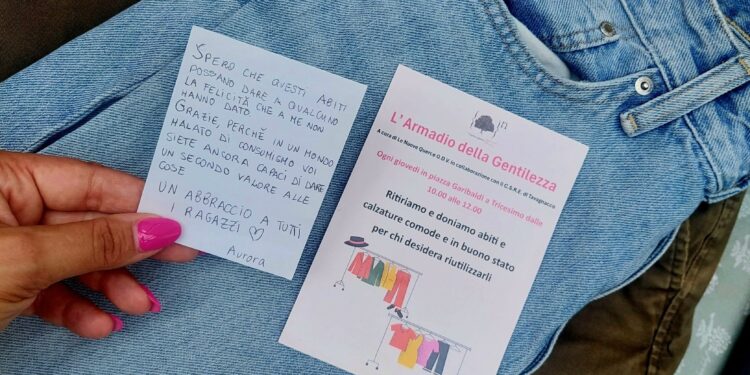 SPERO CHE QUESTI ABITI
POSSANO DARE A QUALCUNO
LA FELICITÀ CHE A ME NON
HANNO DATO.
GRAZIE, PERCHÈ IN UN MONDO
MALATO DI CONSUMISMO VOI
SIETE ANCORA CAPACI DI DARE
UN SECONDO VALORE ALLE
COSE
UN ABBRACCIO A TUTTI
I RAGAZZI ♡
AURORA
L' Armadio della Gentilezza
A cura di Le Nuove Querce O.D.V. in collaborazione con il C.S.R.E. di Tavagnacco
Ogni giovedì in piazza Garibaldi a Tricesimo dalle
10.00 alle 12.00
Ritiriamo e doniamo abiti e
calzature comode e in buono stato
per chi desidera riutilizzarli